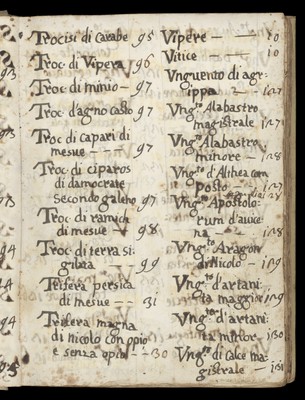 Trocisi di Carabe 95
Troc. di Vipera 96
Troc. di minio - 97
Troc. d'agno casto 97
Troc. di capari di
mesue - - - 97
Troc. di ciparos
di damocrate
secondo galeno 97
Troc. di ramich
di mesue - - 98
Troc. di terra si-
gillata - - 99
Trifera persica
di mesue - - 31
Trifera magna
di nicolo con opio
e senza opio - - 30
Vipere - - - 10
Vitice - - - 10
Unguento di agr-
ippa - - 127
Ung.to Alabastro
magistrale - 127
Ung.to Alabastro
minore - - 128
Ung.to d'Althea com
posto - 127
Ung.to Apostolo-
rum d'avice-
na - - 128
Ung.to Aragon
di Nicolo - 129
Ung.to d'artani-
ta maggior 129
Ung.to d'artani-
ta minor 130
Ung.to di calce ma-
gistrale - 131